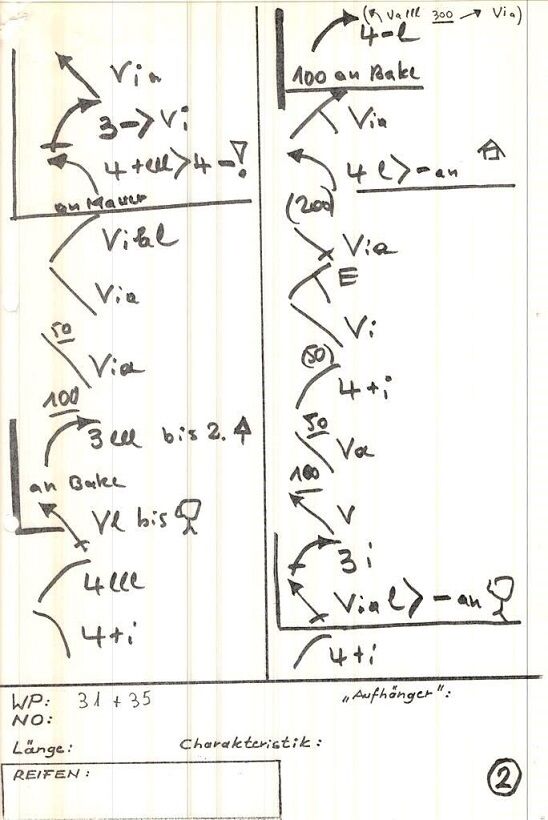 Via
3 -> Vi
4 + lll > 4 - !
an Mauer
Vi lål
Via
50
Via
100
3 lll bis 2.
an Bake
Vl bis
4 lll
4 + i
300
Via)
4 - l
100 an Bake
Via
4 l > - an
(200)
Via
E
Vi
(50)
4 + i
50
Va
100
V
3 i
Via l > - an
4 + i
WP: 31 + 35
NO:
„Aufhänger":
Länge:
Charakteristik:
REIFEN:
2